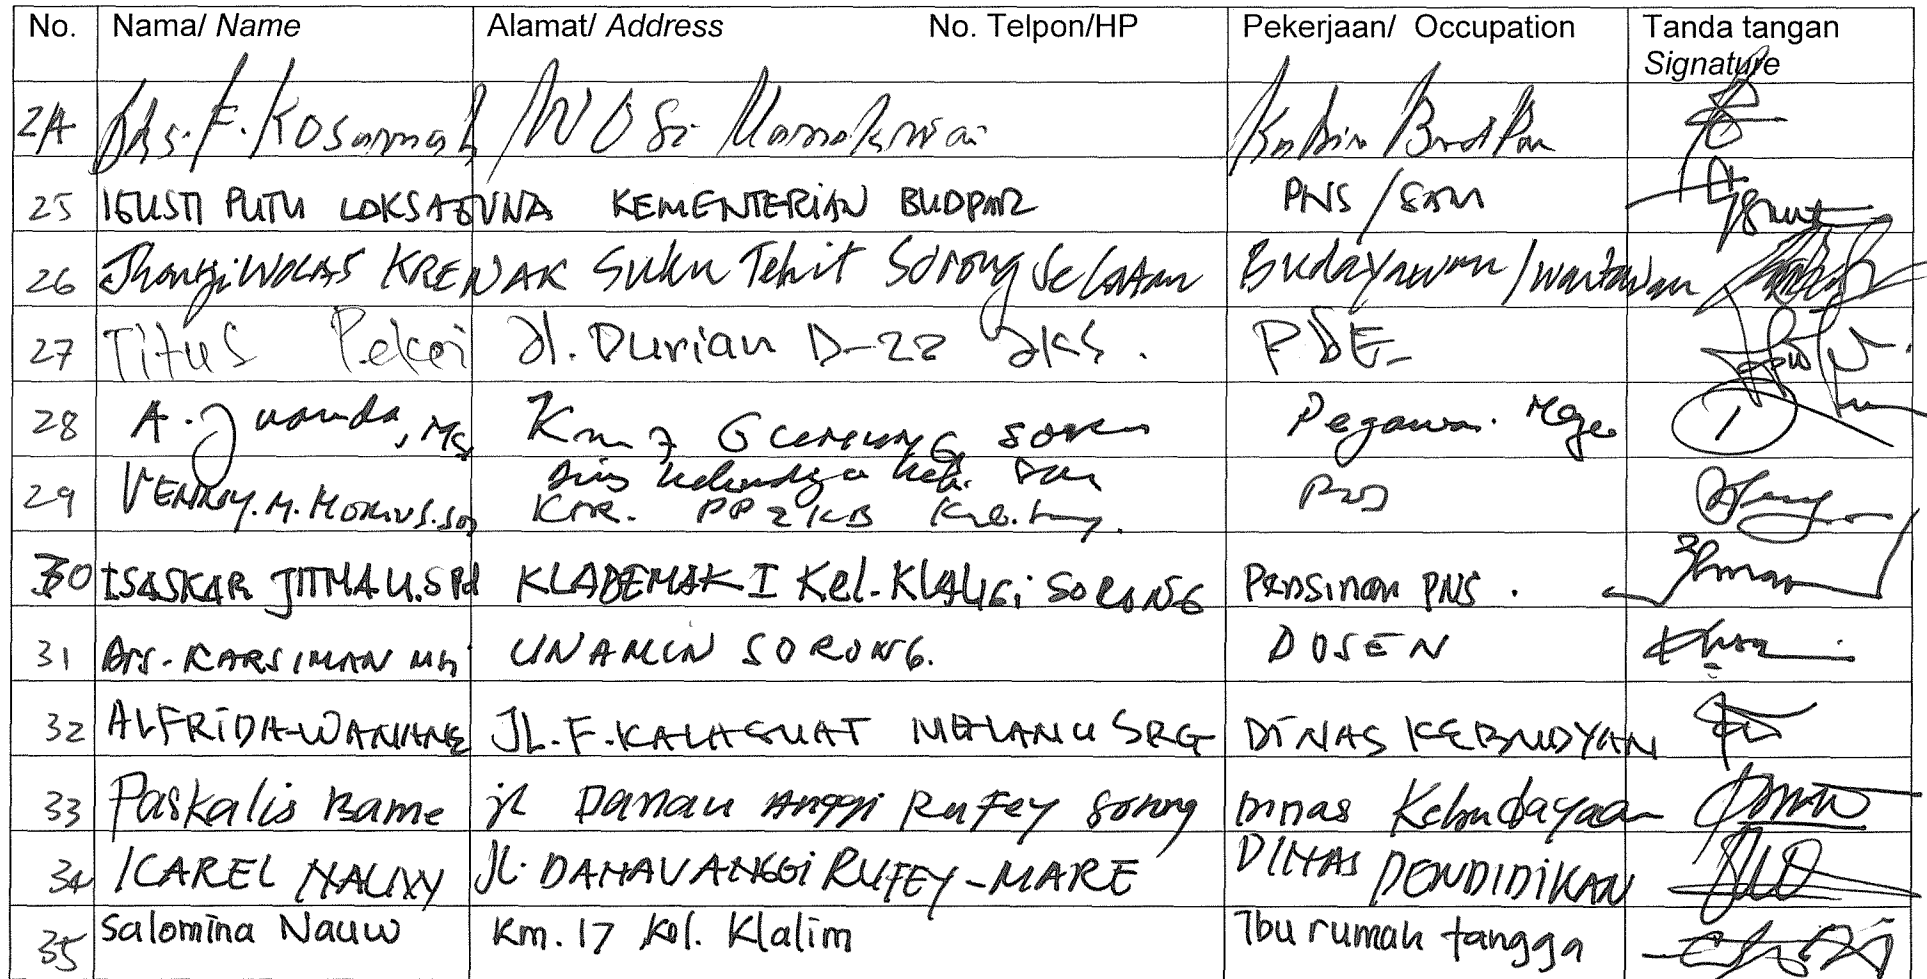 No. Nama/ Name Alamat/ Address No. Telpon/HP Pekerjaan/ Occupation Tanda tangan
Signature
24 Drs. F. Kosamah WOSi
25 IGUSTI PUTU LOKSAGUNA KEMENTERIAN BUDPAR PNS /
26 KRENAK Suku Tehit Sorong Selatan Budayawan /wartawan
27 Titus Pekei Jl. Durian D-22 JKS. PDE
28 A. Juanda, Km 7
29 M.
PP2KB
30 ISASKAR JITMAU.SPd KLADEMAK I Kel. KLALIGi SORONG PENSINAN PNS .
31 Drs. KARSIMAN UNAMIN SORONG. DOSEN
32 ALFRIDA WANANE JL. F. KALAGUAT MALANU SRG DINAS KEBUDYAN
33 Paskalis Bame jl Danau Anggi RuFey Sorong Dinas Kebudayaan
34 KAREL NAUW JL. DANAU ANGGi RUFEY-MARE DINAS PENDIDIKAN
35 Salomina Nauw Km. 17 Kel. Klalim Ibu rumah tangga